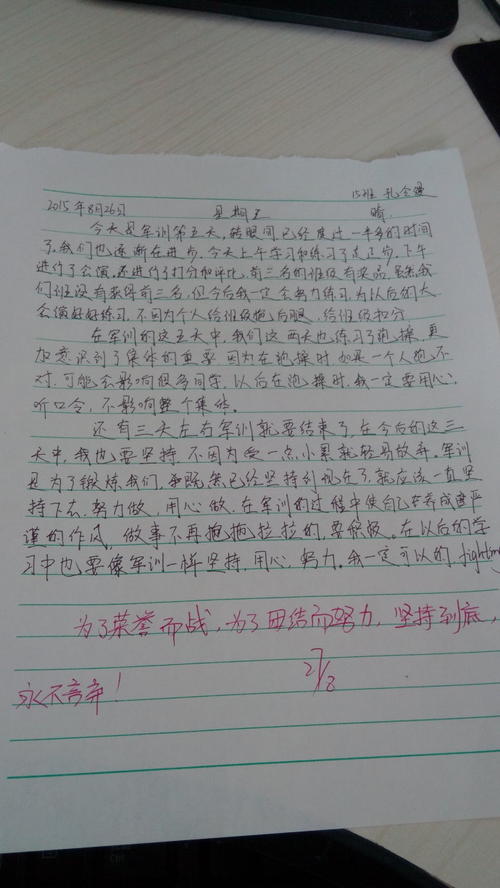 15班 孔令
2015年8月26日 星期五 晴
今天是军训第五天,转眼间已经度过一半多的时间
了,我们也逐渐在进步,今天上午学习和练习了正步,下午
进行了会演,还进行了打分和评比,前三名的班级有奖品,虽然我
们班没有获得前三名,但今后我一定会努力练习,为以后的大
会演好好练习,不因为个人给班级拖后腿,给班级扣分
在军训的这五天中,我们这两天也练习了跑操,更
加意识到了集体的重要,因为在跑操时,如果一个人跑不
对,可能会影响很多同学,以后在跑操时,我一定要用心
听口令,不影响整个集体。
还有三天左右军训就要结束了,在今后的这三
天中,我也要坚持,不因为受一点小累就轻易放弃,军训
是为了锻炼我们,既然已经坚持到现在了,就应该一直坚
持下去,努力做,用心做,在军训的过程中使自己养成严
谨的作风,做事不再拖拖拉拉的,要积极。在以后的学
习中也要像军训一样坚持,用心,努力。我一定可以的,fighting
为了荣誉而战,为了团结而努力,坚持到底,
永不言弃!
27/8